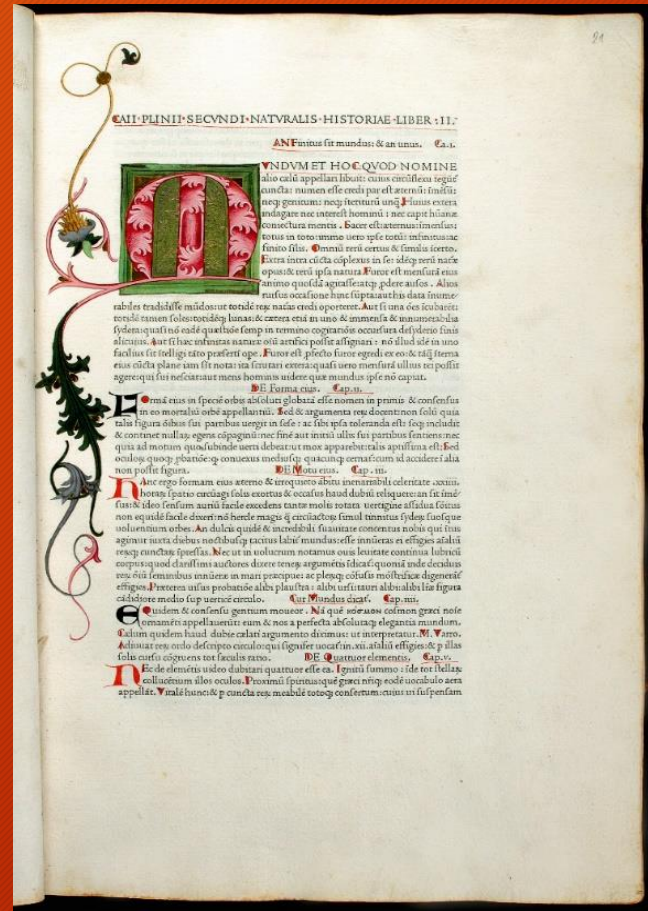 21
CAII·PLINII·SECVNDI·NATVRALIS·HISTORIAE·LIBER·II·
AN Finitus sit mundus: & an unus. Ca.i.
MVNDVM ET HOC QVOD NOMINE
alio cælū appellari libuit: cuius circūflexu
cuncta: numen esse credi par est æternū:
neq; genitum: neq; īteriturū unq̄. Huius extera
indagare nec interest hominū: nec capit hūanæ
coniectura mentis. Sacer est: æternus: imensus:
totus in toto: immo uero ipse totū: infinitus: ac
finito silis. Omniū rerū certus & similis īcerto.
Extra intra cūcta cōplexus in se: idēq; rerū naturæ
opus: & rerū ipsa natura. Furor est mensurā eius
animo quosdā agitasse: atq; pdere ausos. Alios
rursus occasione hinc sūpta: aut his data inume-
rabiles tradidisse mūdos: ut totidē rerū naturas credi oporteret. Aut si una ōes īcubaret:
totidē tamen soles: totidēq; lunas: & cætera etiā in uno & immensa & innumerabilia
sydera: quasi nō eadē quæstiōe semp in termino cogitatiōis occursura desyderio finis
alicuius. Aut si hæc infinitas naturæ oīū artifici possit assignari: nō illud idē in uno
facilius sit ītelligi tāto præserti ope. Furor est pfecto furor egredi ex eo: & tāq̄ īterna
eius cūcta plane iam sīt nota: ita scrutari extera: quasi uero mensurā ullius rei possit
agere: qui sui nesciat: aut mens hominis uidere quæ mundus ipse nō capiat.
DE Forma eius. Cap.ii.
FOrmā eius in speciē orbis absoluti globatā esse nomen in primis & consensus
in eo mortaliū orbē appellantiū. Sed & argumenta rerū docent: non solū quia
talis figura ōibus sui partibus uergit in sese: ac sibi ipsa toleranda est: seq; includit
& continet nullarū egens cōpaginū: nec finē aut initiū ullis sui partibus sentiens: nec
quia ad motum quo subinde uerti debeat: ut mox apparebit: talis aptissima est: Sed
oculorū quoq; pbatiōe: q; conuexus mediusq; quacunq; cernat: cum id accidere ī alia
non possit figura. DE Motu eius. Cap.iii.
HAnc ergo formam eius æterno & irrequieto ābitu inenarrabili celeritate .xxiiii.
horarū spatio circūagi solis exortus & occasus haud dubiū reliquere: an sit imē-
sus: & ideo sensum auriū facile excedens tantæ molis rotatæ uertigine assidua sōitus
non equidē facile dixeri: nō hercle magis q̄ circūactorū simul tinnitus syderū suosque
uoluentium orbes. An dulcis quidē & incredibili suauitate concentus nobis qui ītus
agimur iuxta diebus noctibusq; tacitus labit mundus: esse innūeras ei effigies aīaliū
rerūq; cunctarū īpressas. Nec ut in uolucrum notamus ouis leuitate continua lubricū
corpus: quod clarissimi auctores dixere tenerū argumētis īdicat: quoniā inde deciduis
rerū oīū seminibus innūeræ in mari præcipue: ac plerūq; cōfusis mōstrificæ digenerāt
effigies. Præterea uisus probatiōe alibi plaustra: alibi ursi: tauri alibi: alibi litteræ figura
cādidiore medio sup uerticē circulo. Cur Mundus dicat. Cap.iiii.
EQuidem & consensu gentium moueor. Nā quē κοσμον cosmon græci noīe
ornamēti appellauerūt: eum & nos a perfecta absolutaq; elegantia mundum.
Cælum quidem haud dubie cælati argumento dicimus: ut interpretatur. M. Varro.
Adiuuat rerū ordo descripto circulo: qui signifer uocat in .xii. aīaliū effigies: & p illas
solis cursu cōgruens tot sæculis ratio. DE Quattuor elementis. Cap.v.
NEc de elemētis uideo dubitari quattuor esse ea. Ignitū summo: īde tot stellarū
collucētium illos oculos. Proximū spiritus: quē græci nriq; eodē uocabulo aera
appellāt. Vitalē hunc: & p cuncta rerū meabilē totoq; consertum: cuius ui suspensam